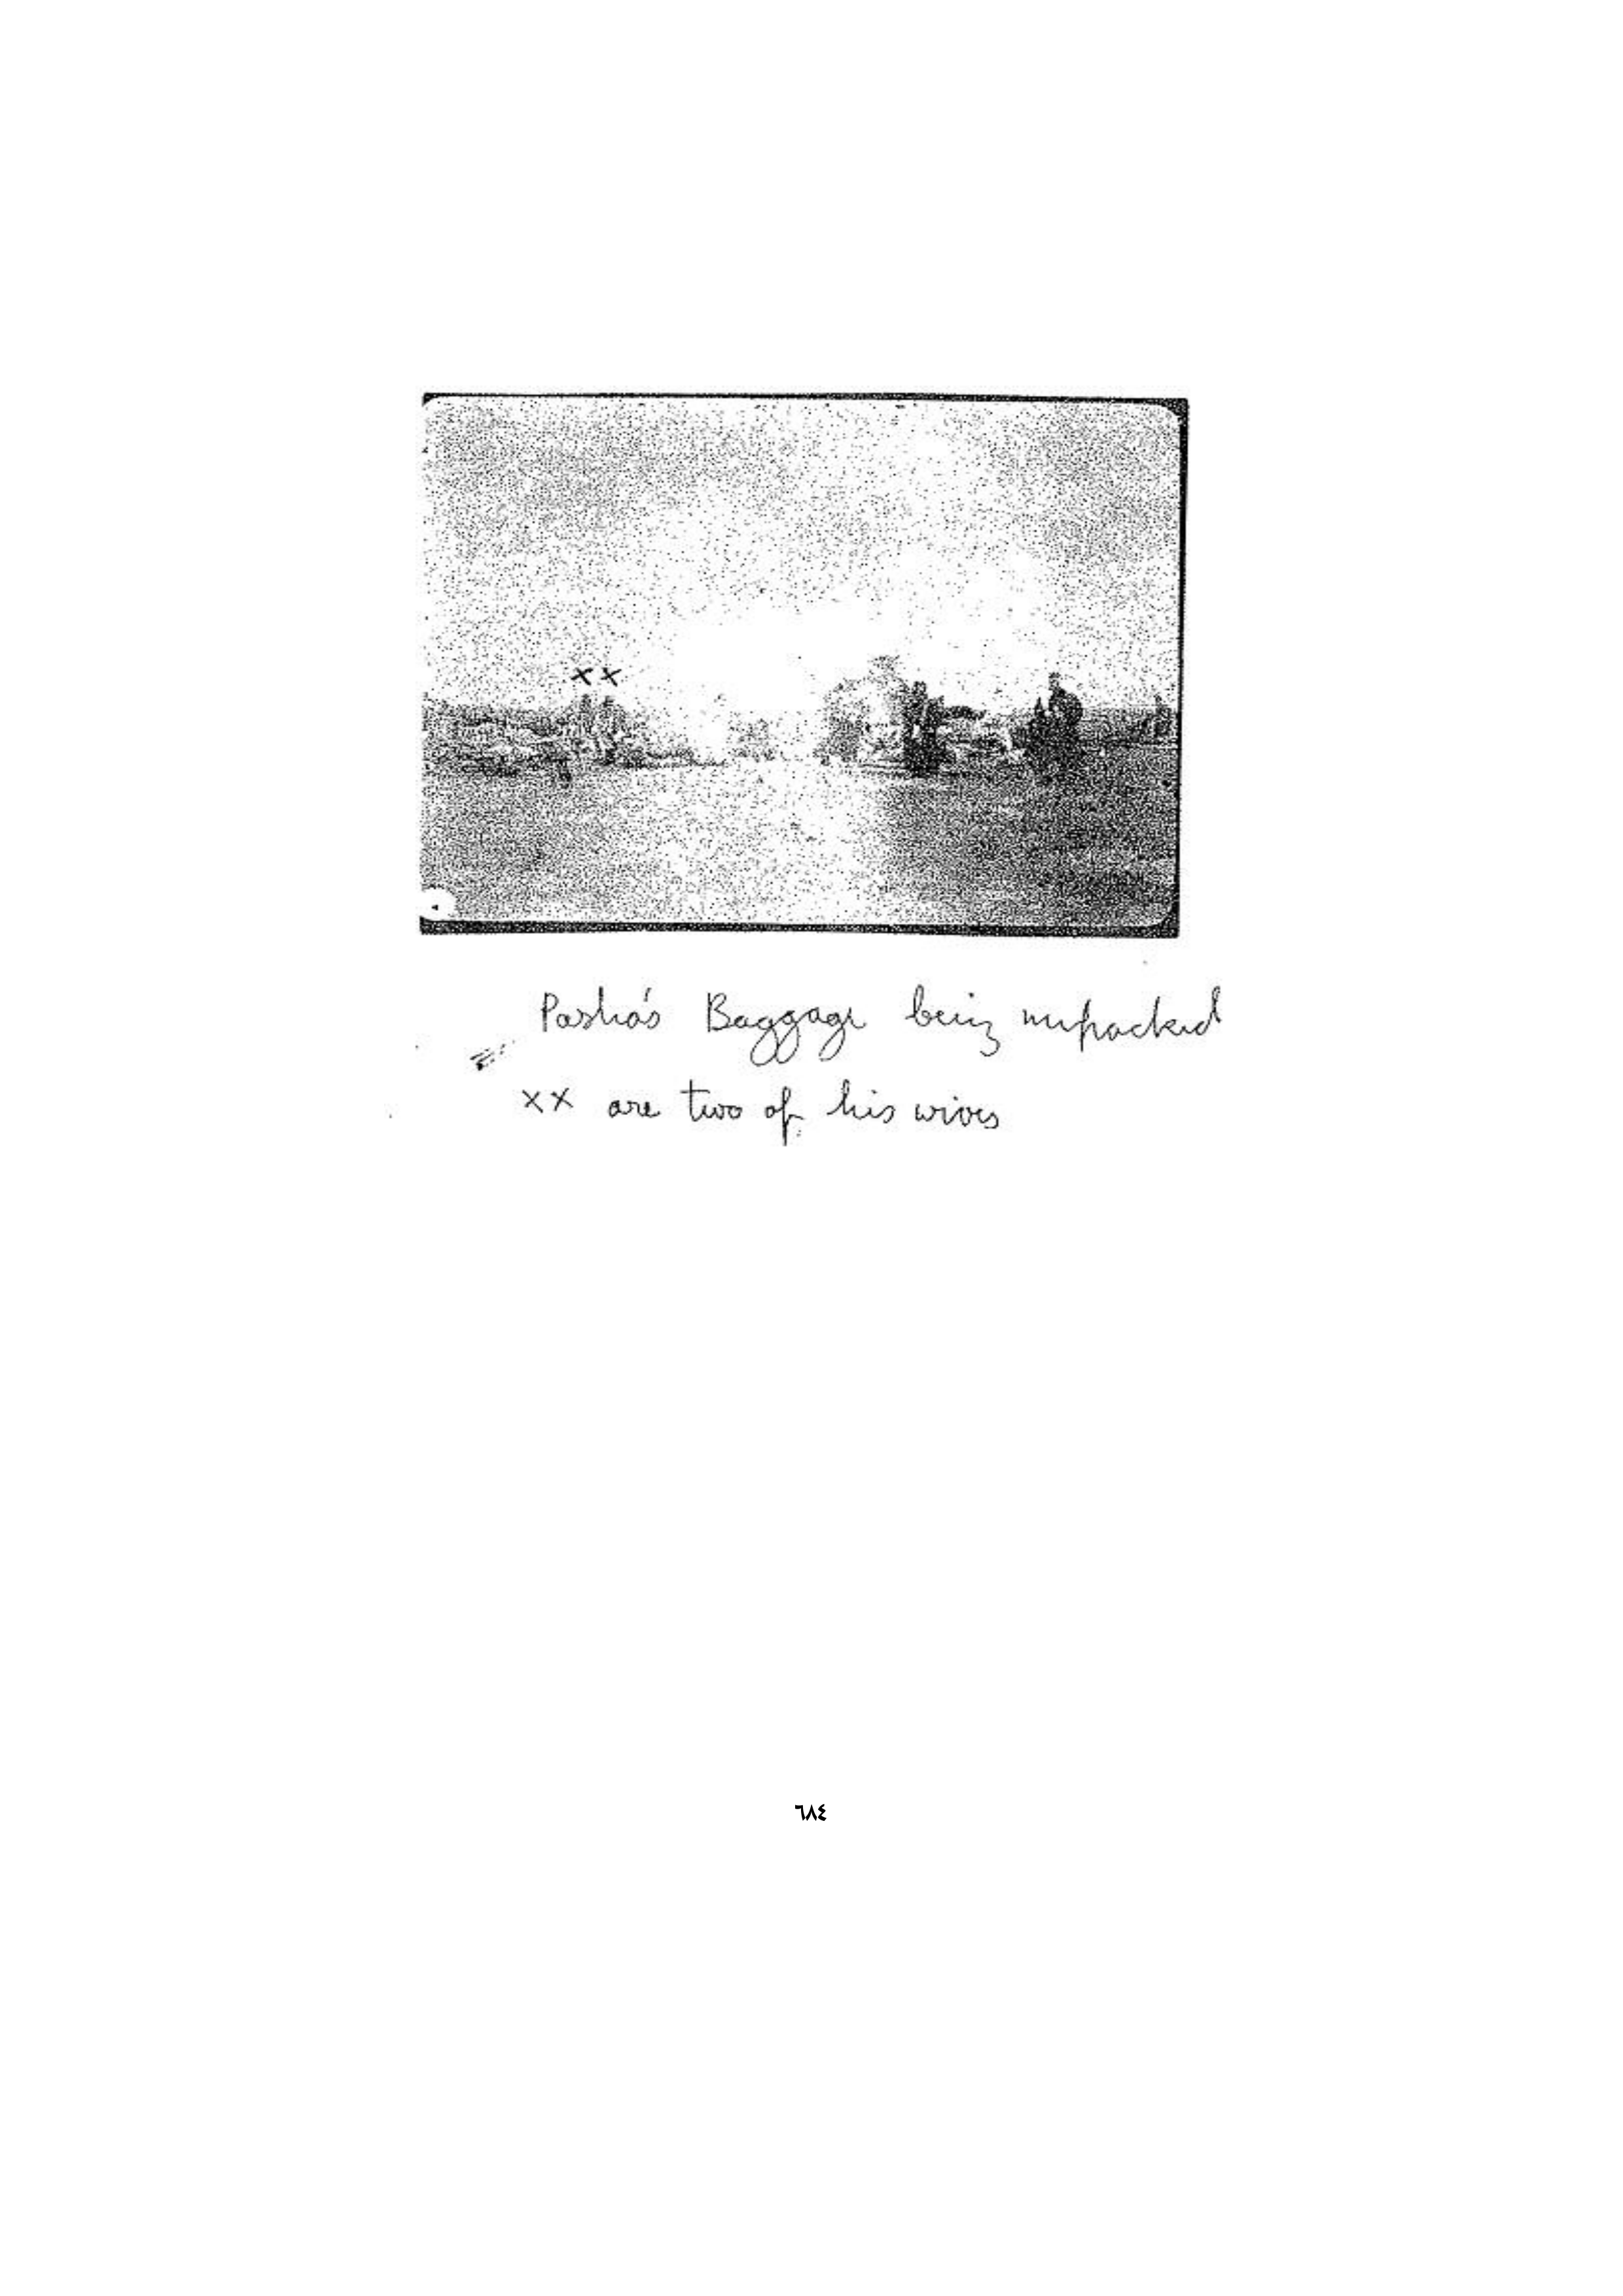 xx
Pasha's Baggage being unpacked
xx are two of his wives
٦٨٤